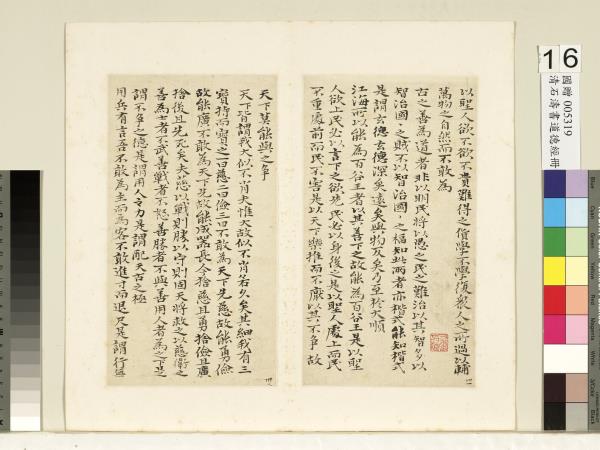 以聖人欲不欲不貴難得之貨學不學復衆人之所過以輔
萬物之自然而不敢為
古之善為道者非以明民將以愚之民之難治以其智多以
智治國國之賊不以智治國國之福知此兩者亦楷式能知楷式
是謂玄德玄德深矣遠矣與物反矣乃至於大順
江海所以能為百谷王者以其善下之故能為百谷王是以聖
人欲上民必以言下之欲先民必以身後之是以聖人處上而民
不重處前而民不害是以天下樂推而不厭以其不爭故
天下莫能與之爭
天下皆謂我大似不肖夫惟大故似不肖若肖久矣其細我有三
寶持而寶之一曰慈二曰儉三曰不敢為天下先慈故能勇儉
故能廣不敢為天下先故能成器長今捨慈且勇捨儉且廣
捨後且先死矣夫慈以戰則勝以守則固天將救之以慈衛之
善為士者不武善戰者不怒善勝者不與善用人者為之下是
謂不爭之德是謂用人之力是謂配天古之極
用兵有言吾不敢為主而為客不敢進寸而退尺是謂行無
16
國贈 005319
清石濤書道德經冊
Blue
Cyan
Green
Yellow
Red
Magenta
White
3/Color
Black